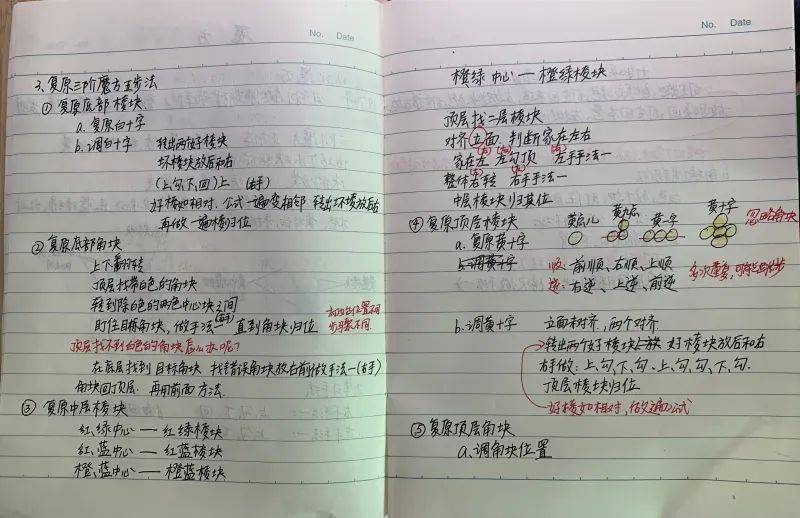 No. Date
3、复原三阶魔方五步法
① 复原底部棱块
a. 复原白十字
b. 调白十字 转出两个好棱块
坏棱块放后和右
(上勾下回)上 (右手)
好棱如相对，公式一遍变相邻 转出坏棱放后右
再做一遍棱归位
② 复原底部角块
上下翻转
顶层找带白色的角块
转到除白色的两色中心块之间
盯住目标角块，做手法一(右手)直到角块归位
步骤不同
顶层找不到白色的角块怎么办呢？
在底层找到目标角块，找错误角块放右前做手法一(右手)
角块回顶层，再用前面方法.
③ 复原中层棱块
红、绿中心 — 红绿棱块
红、蓝中心 — 红蓝棱块
橙、蓝中心 — 橙蓝棱块
No. Date
橙绿中心 — 橙绿棱块
顶层找二层棱块
对齐立面，判断家在左右
家在左 左勾顶 左手手法一
(右) (右) (右)
整体右转 右手手法一
(左)
中层棱块归其位
④ 复原顶层棱块 黄点儿 黄九点 黄一字 黄十字 忽略角块
a. 复原黄十字
b. 调黄十字
顺：前顺、右顺、上顺
逆：右逆、上逆、前逆
多次重复，
b. 调黄十字 立面来对齐，两个对齐.
转出两个好棱块 好棱块放后和右
右手做：上、勾、下、勾、上、勾、勾、下、勾.
顶层棱块归位
好棱如相对，做一遍公式
⑤ 复原顶层角块
a. 调角块位置